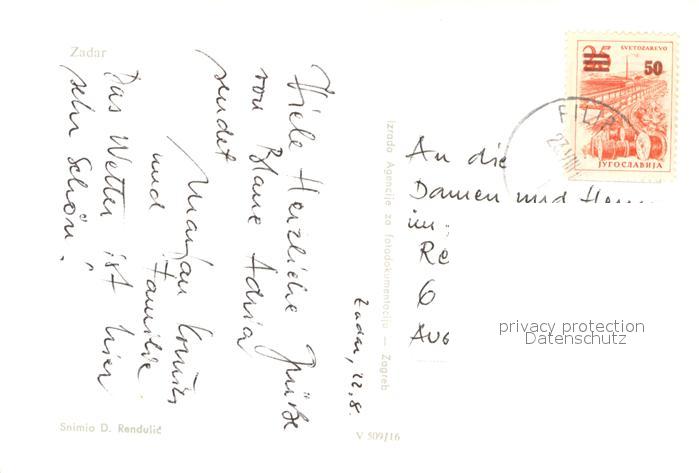 Zadar
Zadar, 22,8.
Viele Herzliche Grüße
von Blaue Adria
sendet
Marijan
und Familie
Das Wetter ist hier
sehr Schön!
Snimio D. Rendulić
V 509/16
Izrada Agencije za fotodokumentaciju — Zagreb
25
SVETOZAREVO
50
ЈУГОСЛАВИЈА
FILI
23.VIII
An die
Damen und
im:
Re
6
Aug
privacy protection
Datenschutz